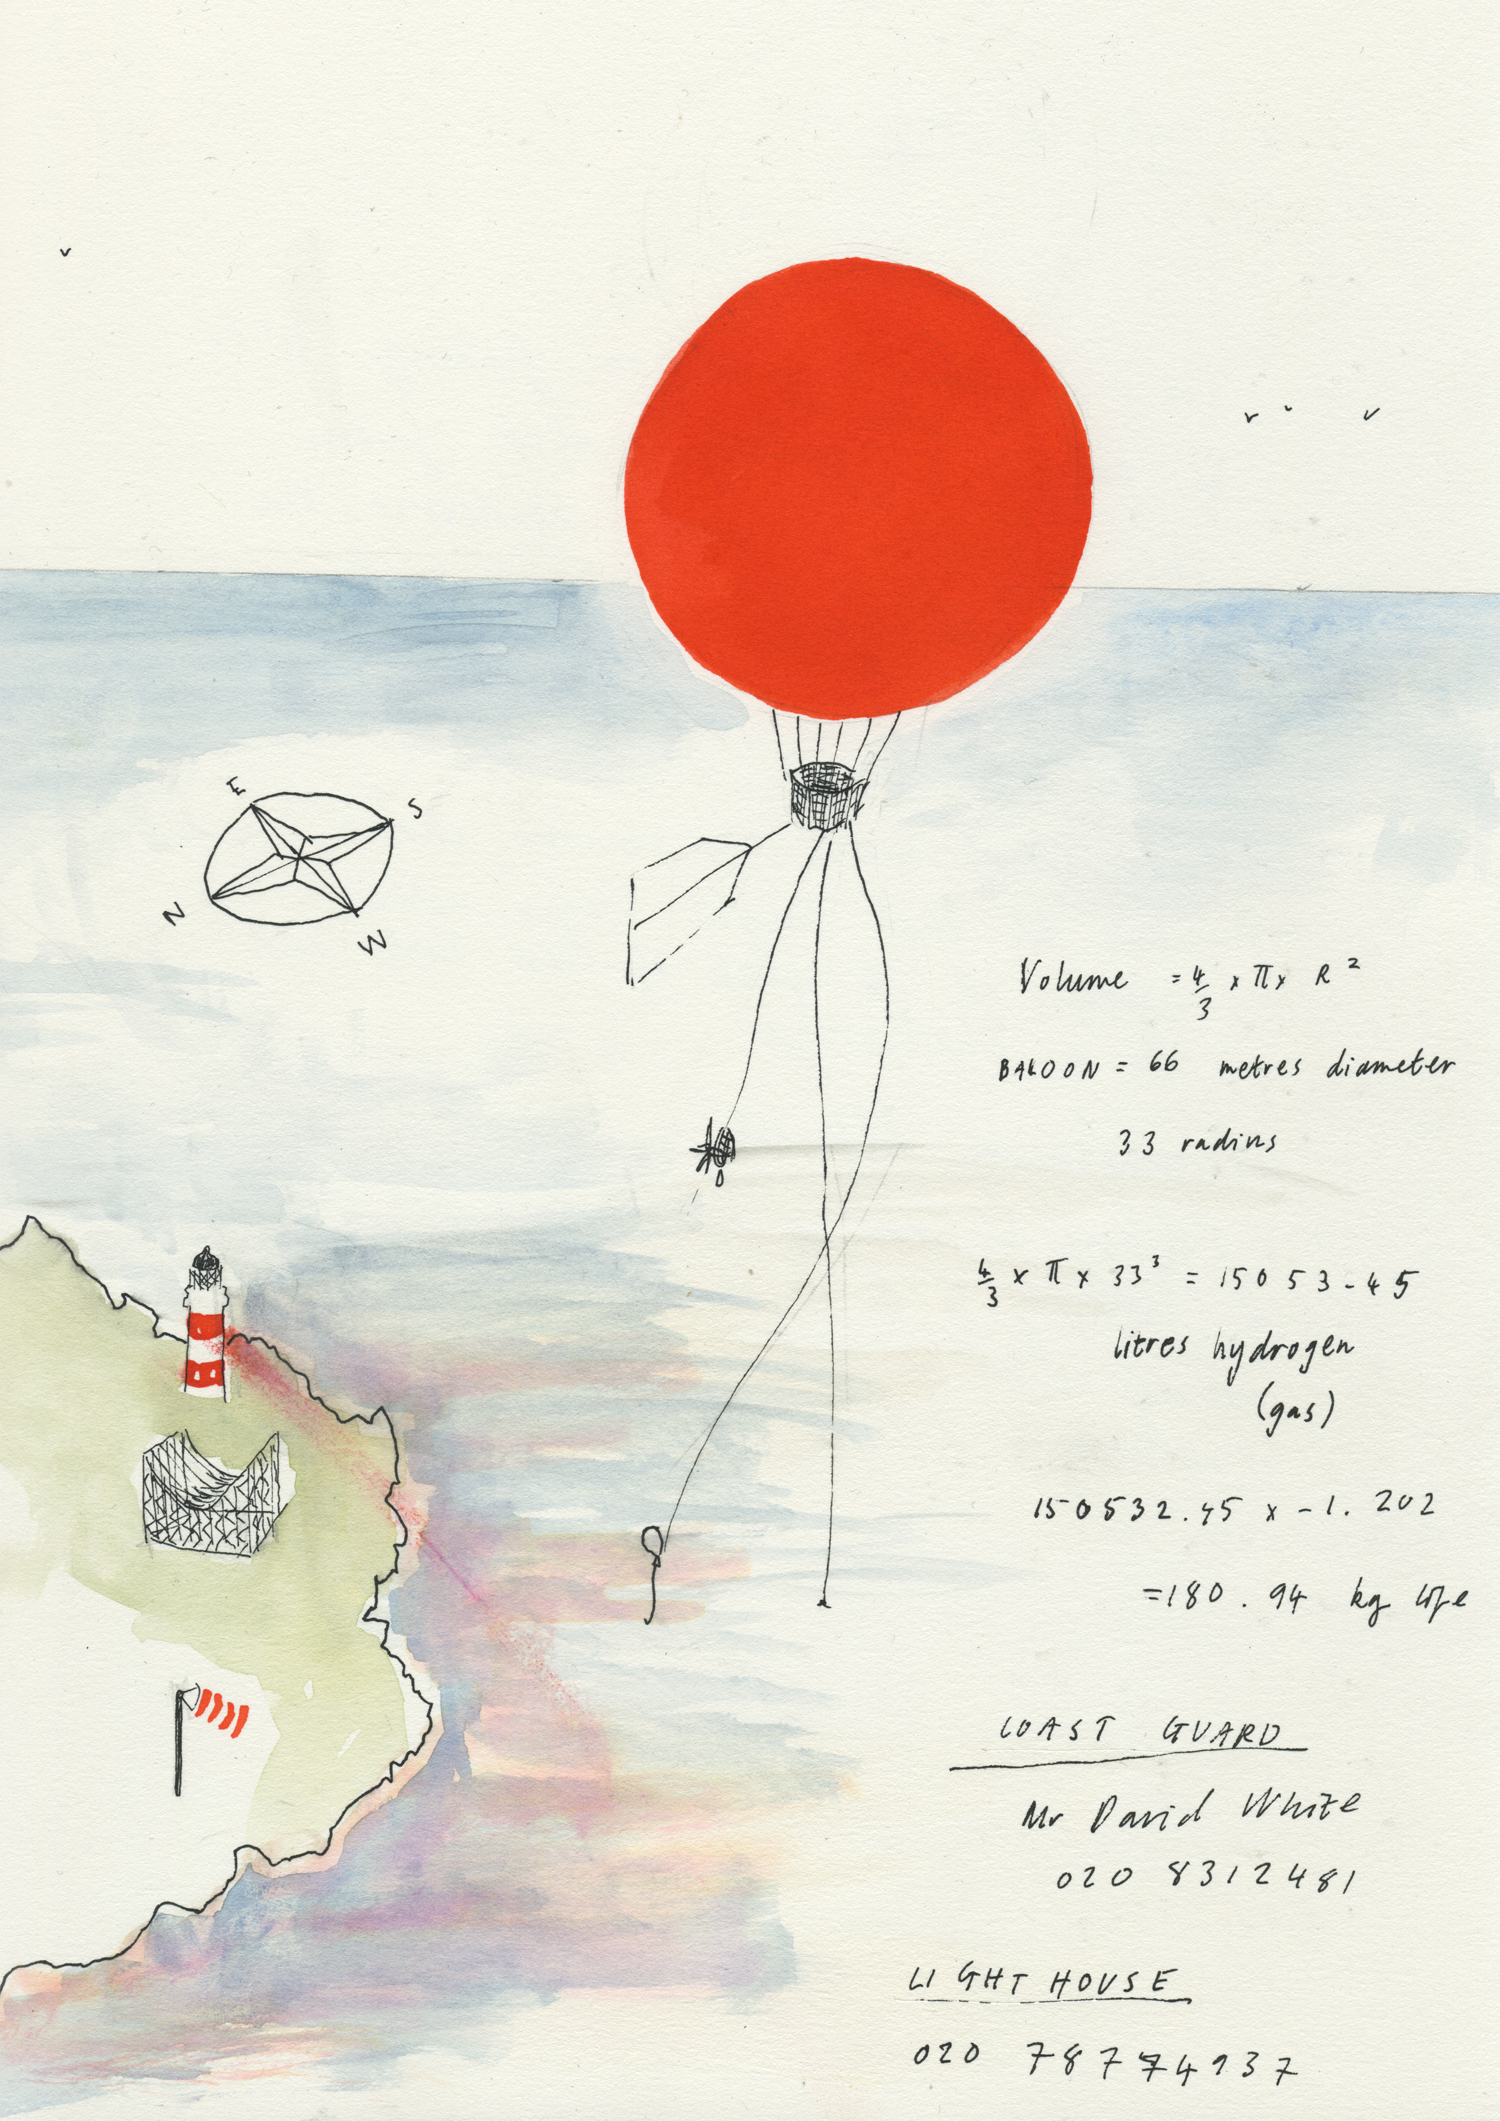 E
S
N
W
Volume = 4/3 x π x R²
BALOON = 66 metres diameter
33 radius
4/3 x π x 33³ = 15053-45
litres hydrogen
(gas)
150532.45 x -1.202
=180.94 kg
COAST GUARD
Mr David White
020 8312481
LIGHT HOUSE
020 78774937